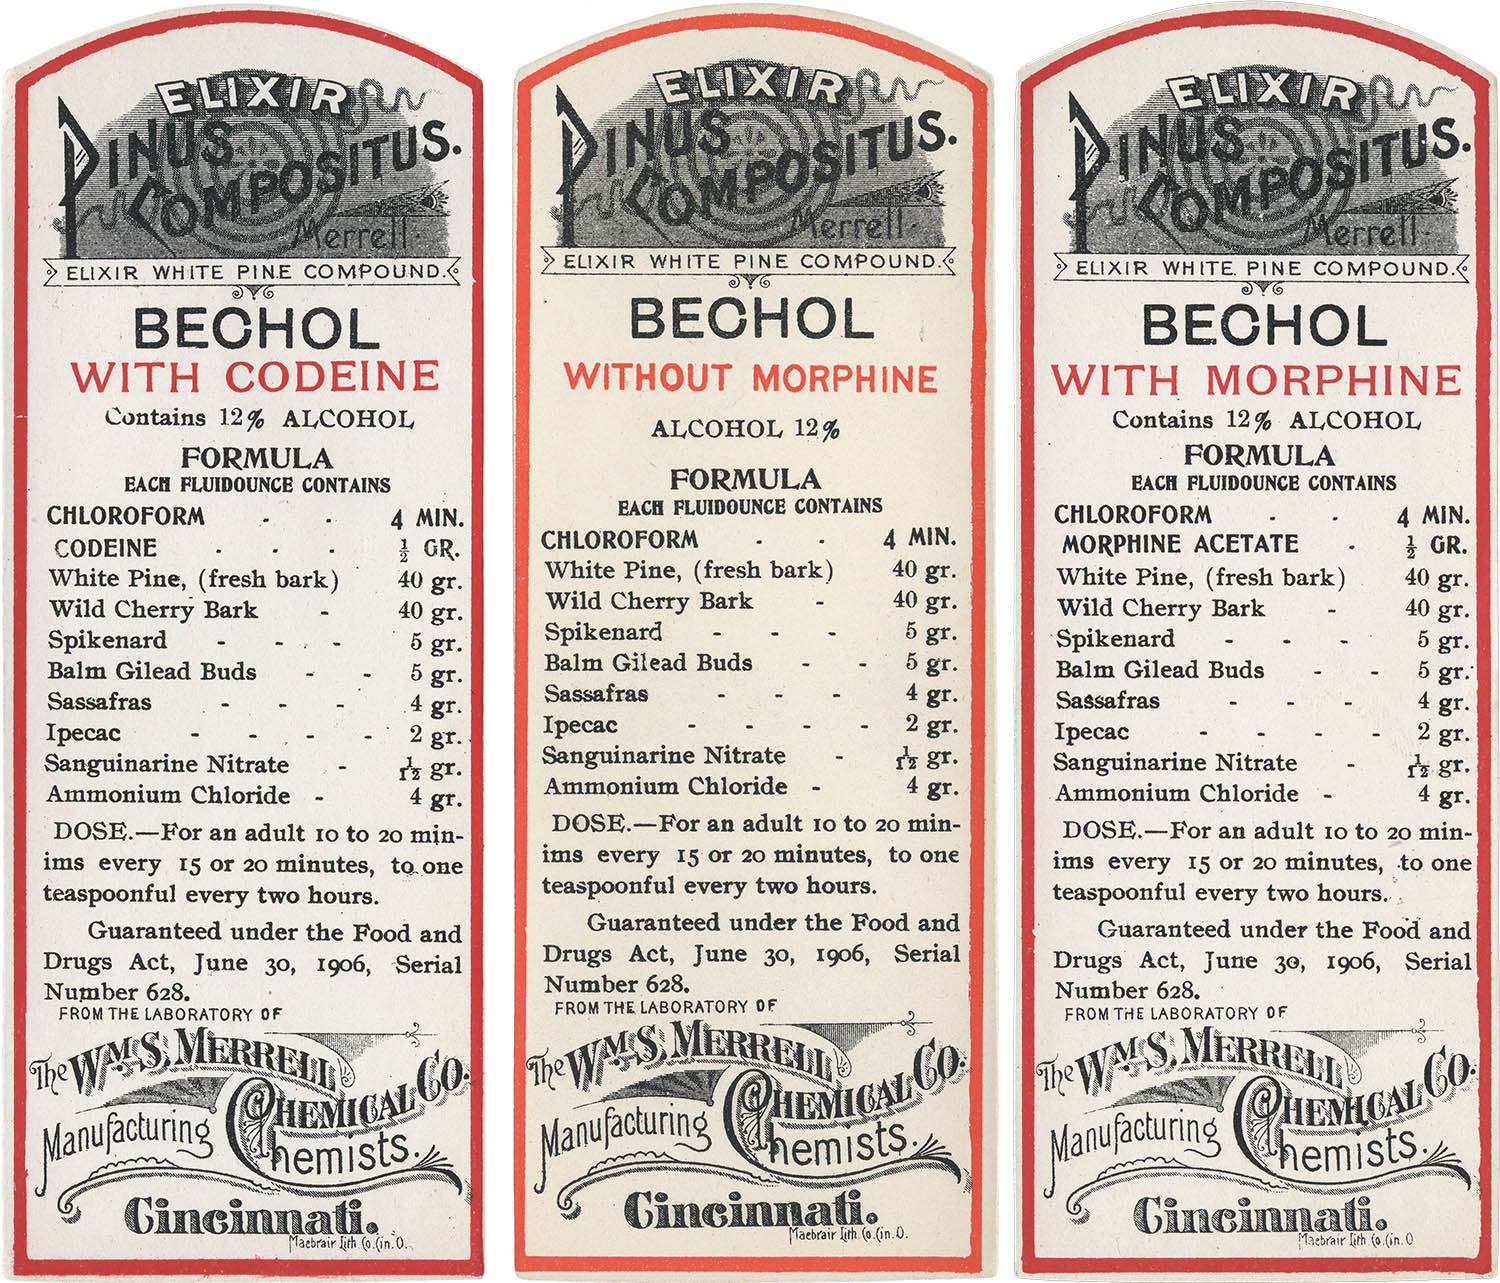 ELIXIR
PINUS COMPOSITUS.
Merrell.
ELIXIR WHITE PINE COMPOUND.
BECHOL
WITH CODEINE
Contains 12% ALCOHOL
FORMULA
EACH FLUIDOUNCE CONTAINS
CHLOROFORM - - 4 MIN.
CODEINE - - - ½ GR.
White Pine, (fresh bark) 40 gr.
Wild Cherry Bark - 40 gr.
Spikenard - - - 5 gr.
Balm Gilead Buds - - 5 gr.
Sassafras - - - 4 gr.
Ipecac - - - - 2 gr.
Sanguinarine Nitrate - 1/12 gr.
Ammonium Chloride - 4 gr.
DOSE.—For an adult 10 to 20 min-
ims every 15 or 20 minutes, to one
teaspoonful every two hours.
Guaranteed under the Food and
Drugs Act, June 30, 1906, Serial
Number 628.
FROM THE LABORATORY OF
The WM. S. MERRELL
CHEMICAL CO.
Manufacturing
Chemists.
Cincinnati.
Macbrair Lith. Co. Cin. O.
ELIXIR
PINUS COMPOSITUS.
Merrell.
ELIXIR WHITE PINE COMPOUND.
BECHOL
WITHOUT MORPHINE
ALCOHOL 12%
FORMULA
EACH FLUIDOUNCE CONTAINS
CHLOROFORM - - 4 MIN.
White Pine, (fresh bark) 40 gr.
Wild Cherry Bark - 40 gr.
Spikenard - - - 5 gr.
Balm Gilead Buds - - 5 gr.
Sassafras - - - 4 gr.
Ipecac - - - - 2 gr.
Sanguinarine Nitrate - 1/12 gr.
Ammonium Chloride - 4 gr.
DOSE.—For an adult 10 to 20 min-
ims every 15 or 20 minutes, to one
teaspoonful every two hours.
Guaranteed under the Food and
Drugs Act, June 30, 1906, Serial
Number 628.
FROM THE LABORATORY OF
The WM. S. MERRELL
CHEMICAL CO.
Manufacturing
Chemists.
Cincinnati.
Macbrair Lith. Co. Cin. O.
ELIXIR
PINUS COMPOSITUS.
Merrell.
ELIXIR WHITE PINE COMPOUND.
BECHOL
WITH MORPHINE
Contains 12% ALCOHOL
FORMULA
EACH FLUIDOUNCE CONTAINS
CHLOROFORM - - 4 MIN.
MORPHINE ACETATE - ½ GR.
White Pine, (fresh bark) 40 gr.
Wild Cherry Bark - 40 gr.
Spikenard - - - 5 gr.
Balm Gilead Buds - - 5 gr.
Sassafras - - - 4 gr.
Ipecac - - - - 2 gr.
Sanguinarine Nitrate - 1/12 gr.
Ammonium Chloride - 4 gr.
DOSE.—For an adult 10 to 20 min-
ims every 15 or 20 minutes, to one
teaspoonful every two hours.
Guaranteed under the Food and
Drugs Act, June 30, 1906, Serial
Number 628.
FROM THE LABORATORY OF
The WM. S. MERRELL
CHEMICAL CO.
Manufacturing
Chemists.
Cincinnati.
Macbrair Lith. Co. Cin. O